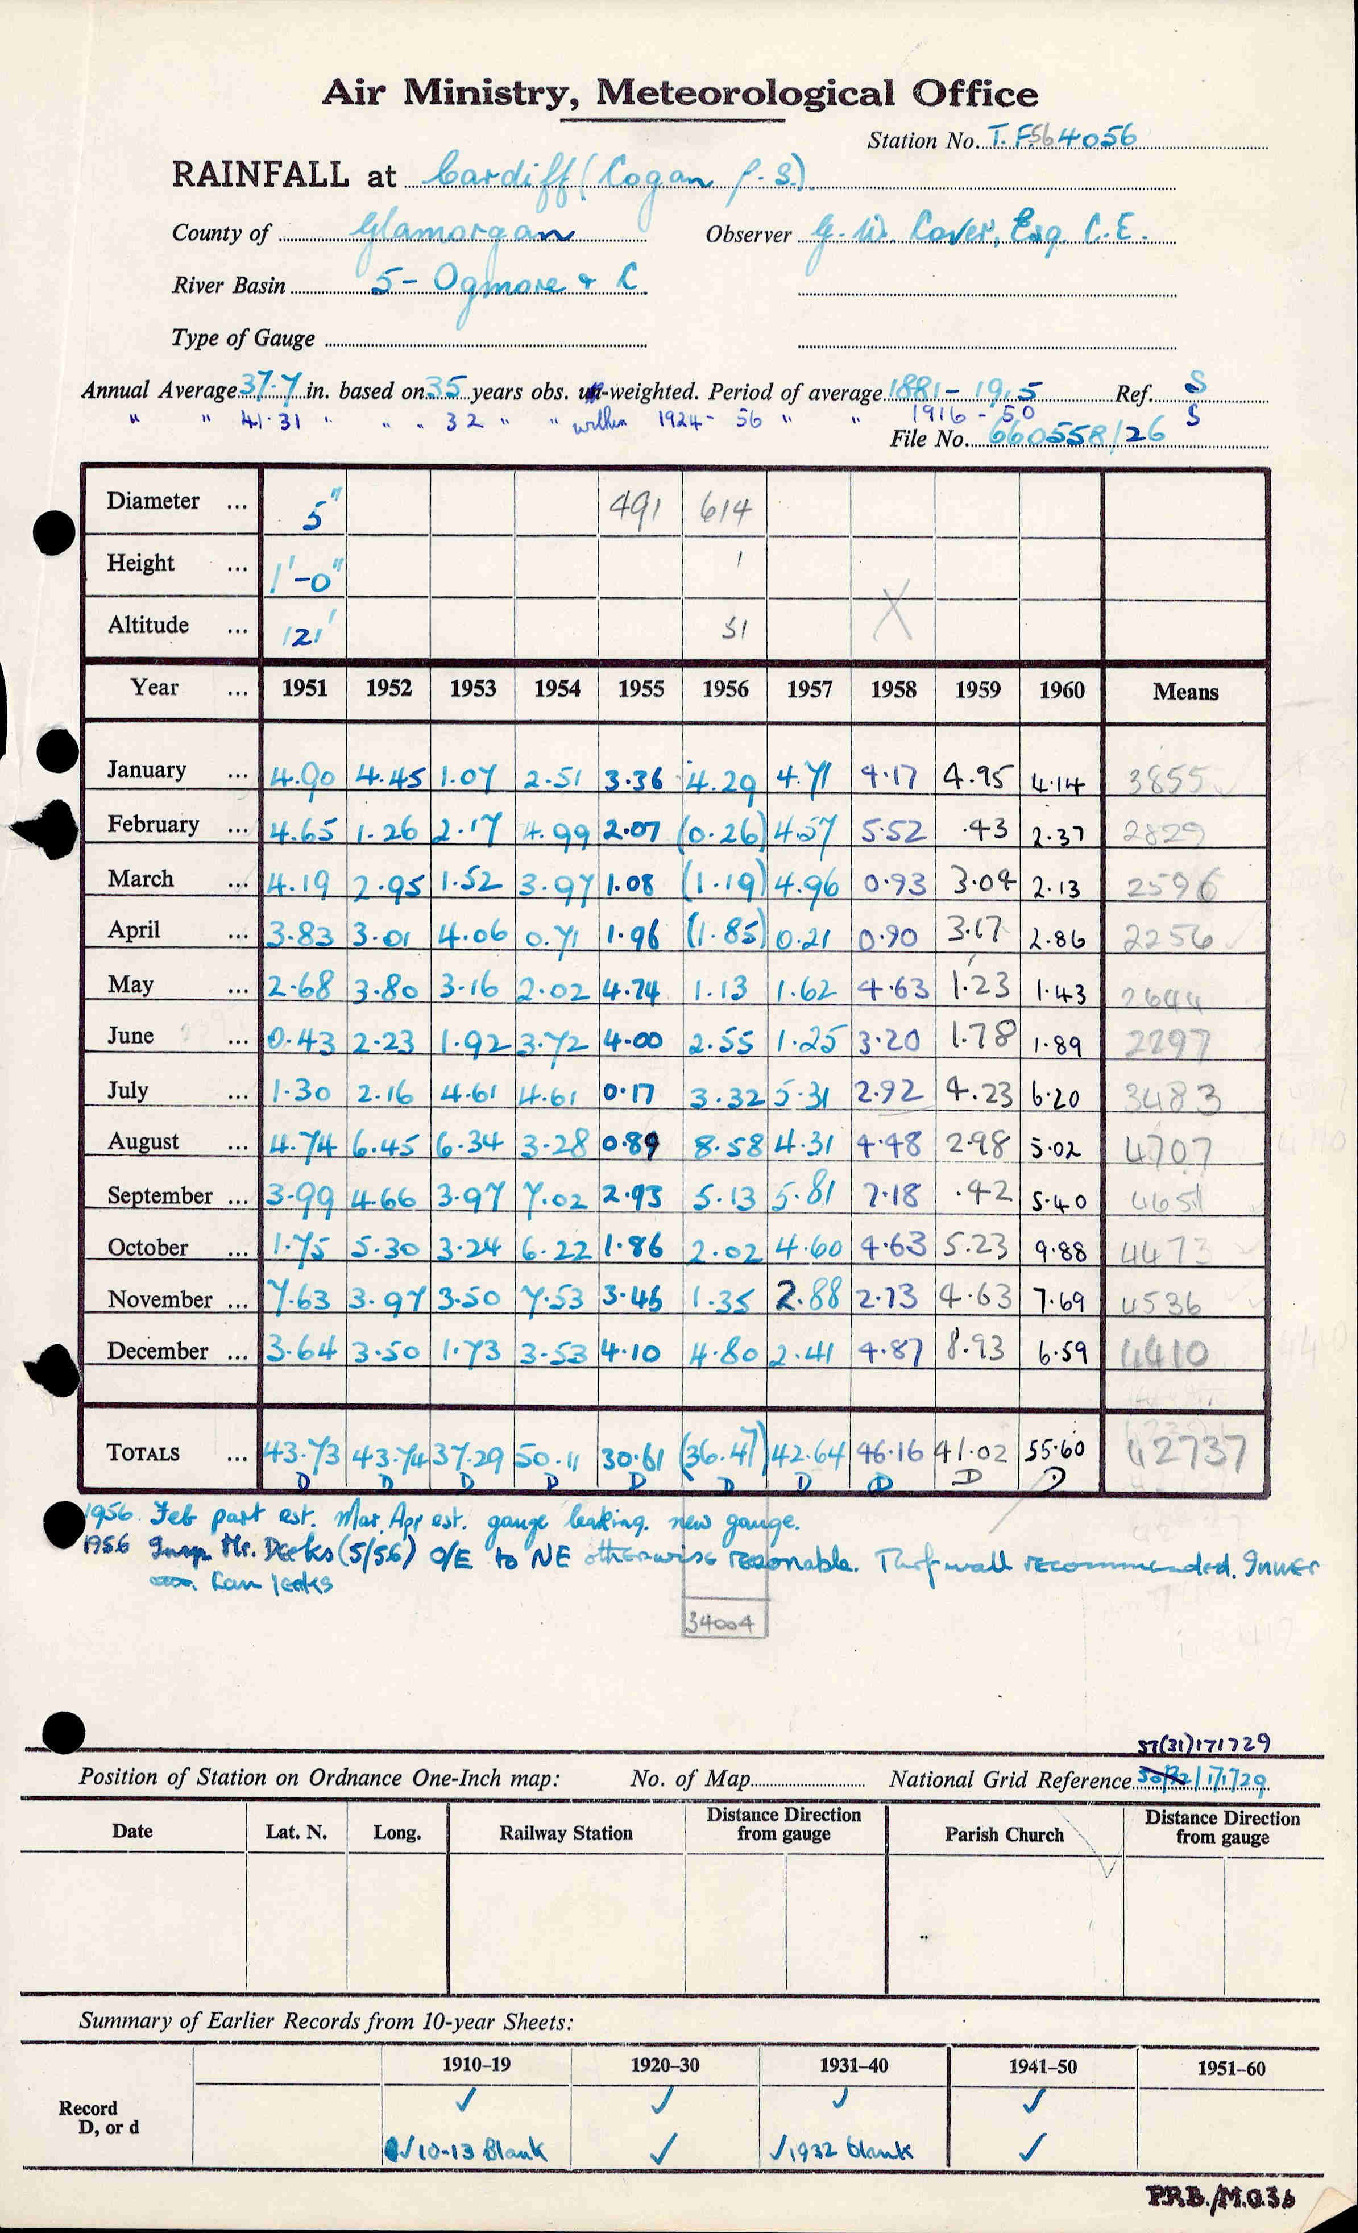 Air Ministry, Meteorological Office
Station No. T.F.564056
RAINFALL at Cardiff (Cogan P.S.)
County of Glamorgan Observer G. W. Cover, Esq. C.E.
River Basin 5- Ogmore & C
Type of Gauge
Annual Average 37.7 in. based on 35 years obs. un-weighted. Period of average 1881 - 1915 Ref. S
" " 41.31 " " " 32 " " within 1924 - 56 " " 1916 - 50 S
File No. 660558/26
Diameter ... 5" 491 614
Height ... 1'-0" 1
Altitude ... 121' 51 X
Year ... 1951 1952 1953 1954 1955 1956 1957 1958 1959 1960 Means
January ... 4.90 4.45 1.07 2.51 3.36 4.29 4.71 4.17 4.95 4.14 3855
February ... 4.65 1.26 2.17 4.99 2.07 (0.26) 4.57 5.52 .43 2.37 2829
March ... 4.19 2.95 1.52 3.97 1.08 (1.19) 4.96 0.93 3.04 2.13 2596
April ... 3.83 3.01 4.06 0.71 1.96 (1.85) 0.21 0.90 3.17 2.86 2256
May ... 2.68 3.80 3.16 2.02 4.74 1.13 1.62 4.63 1.23 1.43 2644
June ... 0.43 2.23 1.92 3.72 4.00 2.55 1.25 3.20 1.78 1.89 2297
July ... 1.30 2.16 4.61 4.61 0.17 3.32 5.31 2.92 4.23 6.20 3483
August ... 4.74 6.45 6.34 3.28 0.89 8.58 4.31 4.48 2.98 5.02 4707
September ... 3.99 4.66 3.97 7.02 2.93 5.13 5.81 7.18 .42 5.40 4651
October ... 1.75 5.30 3.24 6.22 1.86 2.02 4.60 4.63 5.23 9.88 4473
November ... 7.63 3.97 3.50 7.53 3.45 1.35 2.88 2.73 4.63 7.69 4536
December ... 3.64 3.50 1.73 3.53 4.10 4.80 2.41 4.87 8.93 6.59 4410
TOTALS ... 43.73 43.74 37.29 50.11 30.61 (36.47) 42.64 46.16 41.02 55.60 42737
D D D D D D D D D D
1956 Feb part est. Mar, Apr est. gauge leaking. new gauge.
1956 Insp. Mr. Deeks (5/56) O/E to NE otherwise reasonable. Turf wall recommended. Inner
can leaks
34004
ST(31)171729
Position of Station on Ordnance One-Inch map: No. of Map National Grid Reference 171729
Date Lat. N. Long. Railway Station Distance Direction from gauge Parish Church Distance Direction from gauge
Summary of Earlier Records from 10-year Sheets:
1910–19 1920–30 1931–40 1941–50 1951–60
Record ✓ ✓ ✓ ✓
D, or d ✓10-13 Blank ✓ ✓1932 blank ✓
P.R.B./M.O.36